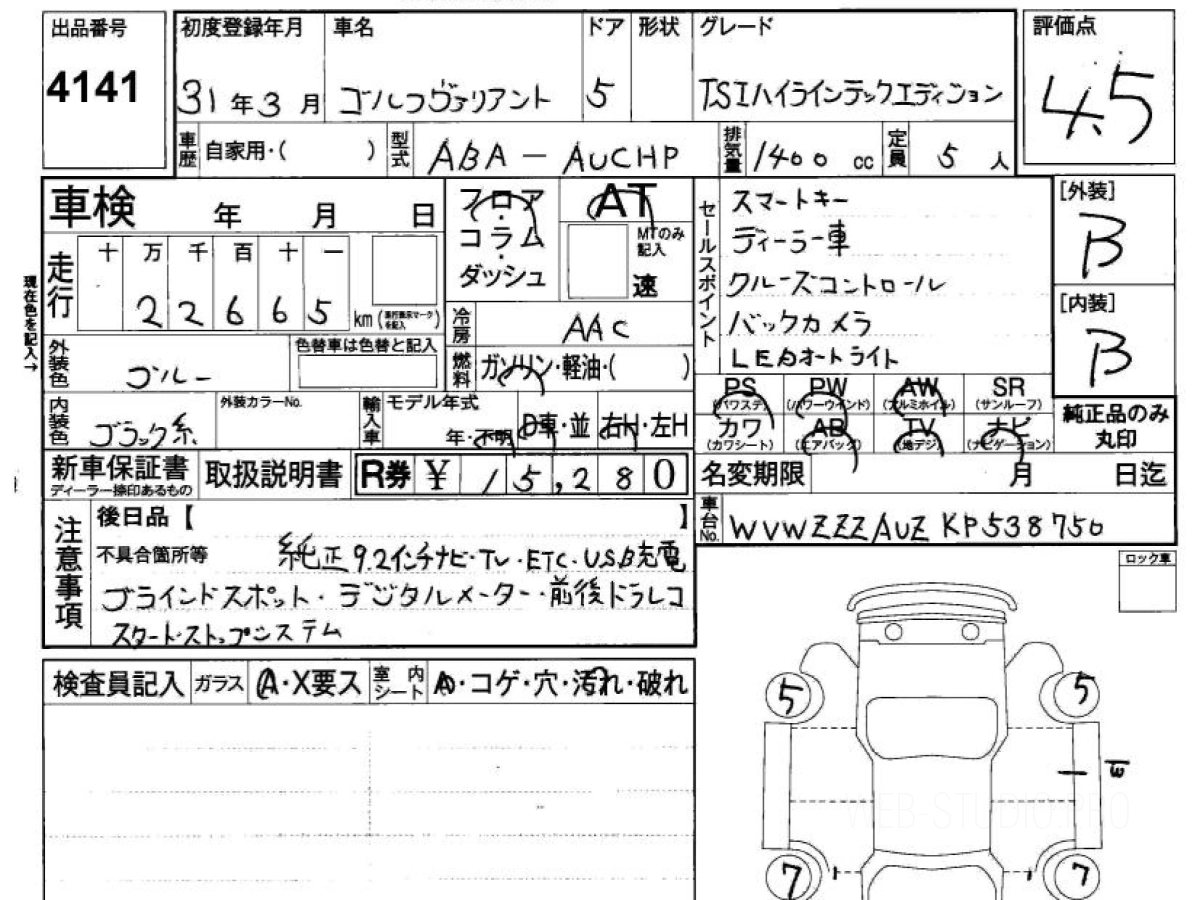 出品番号
4141
初度登録年月
31年3月
車名
ゴルフヴァリアント
ドア
5
形状
グレード
TSIハイラインテックエディション
評価点
4.5
車歴 自家用・( )
型式 ABA-AUCHP
排気量 1400 cc
定員 5人
車検 年 月 日
フロア・コラム・ダッシュ
AT
MTのみ記入
速
セールスポイント
スマートキー
ディーラー車
クルーズコントロール
バックカメラ
LEDオートライト
[外装]
B
[内装]
B
現在色を記入→
走行
十 万 千 百 十 一
2 2 6 6 5 km
冷房 AAC
外装色 ブルー
色替車は色替と記入
燃料 ガソリン・軽油・( )
内装色 ブラック系
外装カラーNo.
輸入車
モデル年式
年・不明
D車・並
右H・左H
PS (パワステ)
PW (パワーウインド)
AW (アルミホイル)
SR (サンルーフ)
カワ (カワシート)
AB (エアバッグ)
TV (地デジ)
ナビ (ナビゲーション)
純正品のみ丸印
新車保証書
ディーラー捺印あるもの
取扱説明書
R券 ¥ 15,280
名変期限 月 日迄
車台No. WVWZZZAUZKP538750
注意事項
後日品【 】
不具合箇所等 純正9.2インチナビ・TV・ETC・USB充電
ブラインドスポット・デジタルメーター・前後ドラレコ
スタートストップシステム
ロック車
検査員記入
ガラス A・X要ス
室内シート A・コゲ・穴・汚れ・破れ
5
5
7
7
WEB-STUDIO.PRO